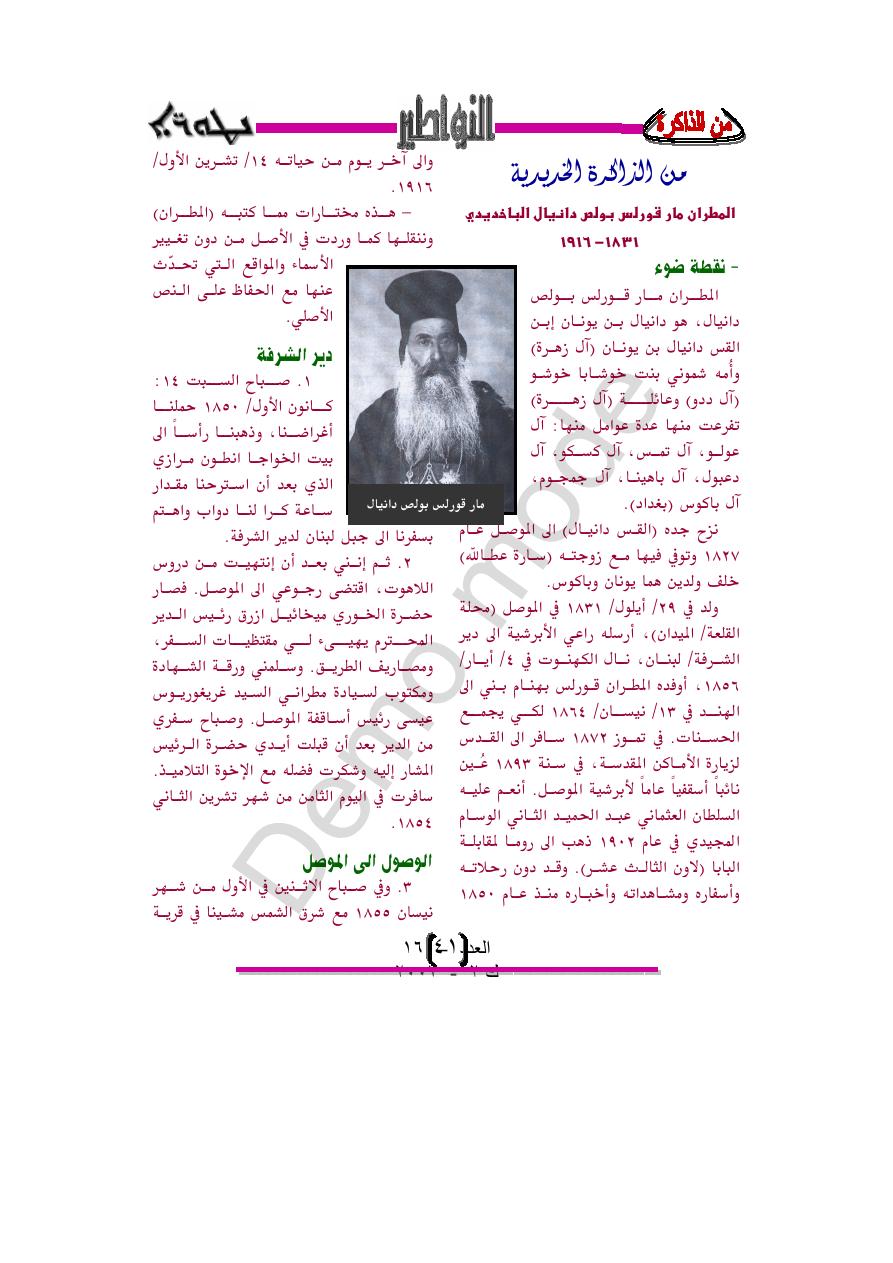 من الذاكرة
النواطير
من الذاكرة الخديدية
المطران مار قورلس بولص دانيال الباخديدي
١٨٣١- ١٩١٦
- نقطة ضوء
المطران مار قورلس بولص
دانيال، هو دانيال بن يونان إبن
القس دانيال بن يونان (آل زهرة)
وأُمه شموني بنت خوشابا خوشو
(آل ددو) وعائلة (آل زهرة)
تفرعت منها عدة عوامل منها: آل
عولو، آل تمس، آل كسكو، آل
دعبول، آل باهينا، آل جمجوم،
آل باكوس (بغداد).
نزح جده (القس دانيال) الى الموصل عام
١٨٢٧ وتوفي فيها مع زوجته (سارة عطاالله)
خلف ولدين هما يونان وباكوس.
ولد في ٢٩/ أيلول/ ١٨٣١ في الموصل (محلة
القلعة/ الميدان)، أرسله راعي الأبرشية الى دير
الشرفة/ لبنان، نال الكهنوت في ٤/ أيار/
١٨٥٦، أوفده المطران قورلس بهنام بني الى
الهند في ١٣/ نيسان/ ١٨٦٤ لكي يجمع
الحسنات. في تموز ١٨٧٢ سافر الى القدس
لزيارة الأماكن المقدسة، في سنة ١٨٩٣ عُين
نائباً أسقفياً عاماً لأبرشية الموصل. أنعم عليه
السلطان العثماني عبد الحميد الثاني الوسام
المجيدي في عام ١٩٠٢ ذهب الى روما لمقابلة
البابا (لاون الثالث عشر). وقد دون رحلاته
وأسفاره ومشاهداته وأخباره منذ عام ١٨٥٠
والى آخر يوم من حياته ١٤/ تشرين الأول/
١٩١٦.
– هذه مختارات مما كتبه (المطران)
وننقلها كما وردت في الأصل من دون تغيير
الأسماء والمواقع التي تحدّث
عنها مع الحفاظ على النص
الأصلي.
مار قورلس بولص دانيال
دير الشرفة
١. صباح السبت ١٤:
كانون الأول/ ١٨٥٠ حملنا
أغراضنا، وذهبنا رأساً الى
بيت الخواجا انطون مرازي
الذي بعد أن استرحنا مقدار
ساعة كرا لنا دواب واهتم
بسفرنا الى جبل لبنان لدير الشرفة.
٢. ثم إنني بعد أن إنتهيت من دروس
اللاهوت، اقتضى رجوعي الى الموصل. فصار
حضرة الخوري ميخائيل ازرق رئيس الدير
المحترم يهيىء لي مقتظيات السفر،
ومصاريف الطريق. وسلمني ورقة الشهادة
ومكتوب لسيادة مطراني السيد غريغوريوس
عيسى رئيس أساقفة الموصل. وصباح سفري
من الدير بعد أن قبلت أيدي حضرة الرئيس
المشار إليه وشكرت فضله مع الإخوة التلاميذ.
سافرت في اليوم الثامن من شهر تشرين الثاني
١٨٥٤.
الوصول الى الموصل
٣. وفي صباح الاثنين في الأول من شهر
نيسان ١٨٥٥ مع شرق الشمس مشينا في قرية
Demo mode
العدد (٤١) ١٦